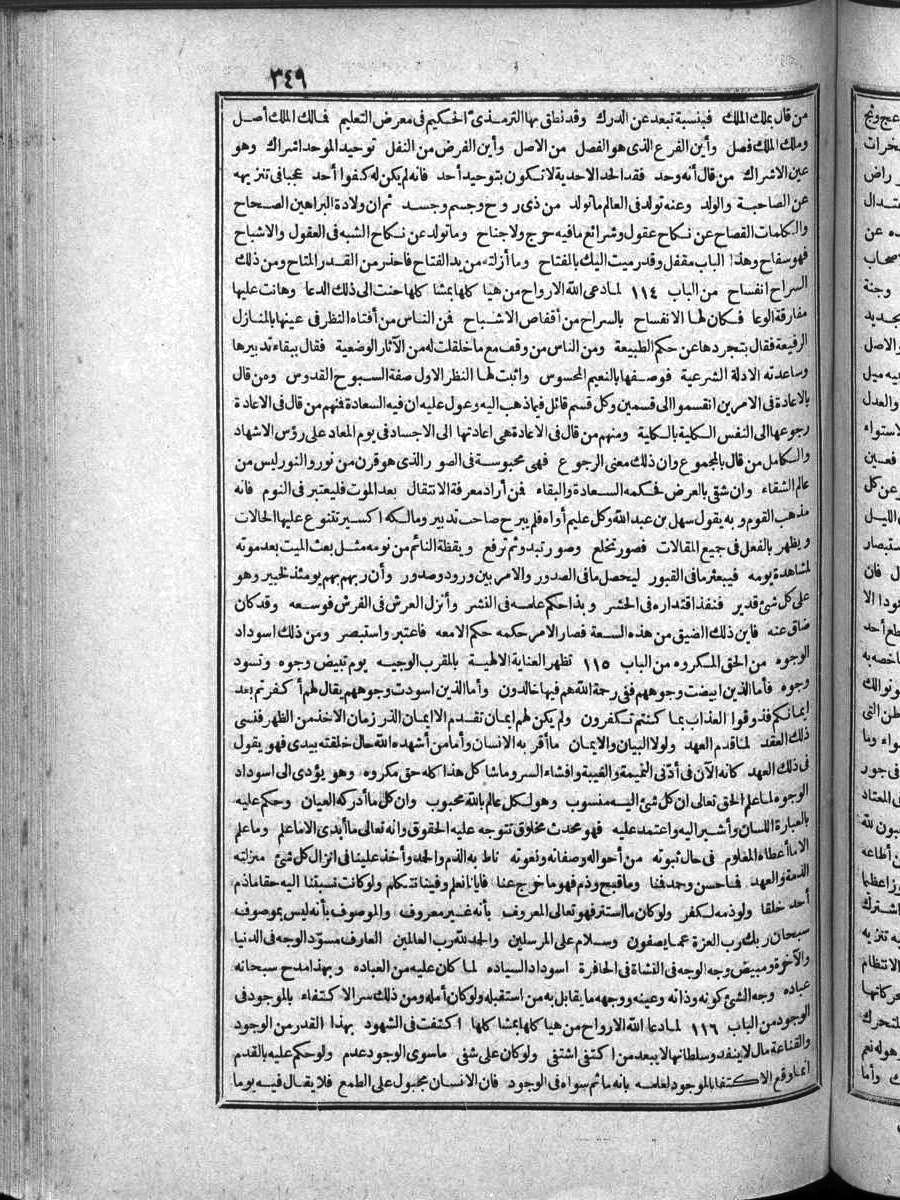 ٣٤٩
من قال بملك الملك فبنسبة تبعد عن الدرك وقد نطق بها الترمذى الحكيم فى معرض التعليم فالك الملك أصل
وملك الملك فصل وأين الفرع الذى هو الفصل من الاصل وأين الفرض من النفل توحيد الموحد اشراك وهو
عين الاشراك من قال أنه وحد فقد الحد الاحدية لا تكون بتوحيد أحد فانه لم يكن له كفوا أحد عجبا فى تنزيهه
عن الصاحبة والولد وعنه تولد فى العالم ما تولد من ذى روح وجسم وجسد ثم ان ولادة البراهين الصحاح
والكلمات الفصاح عن نكاح عقول وشرائع مافيه حرج ولا جناح وما تولد عن نكاح الشبه فى العقول والاشباح
فهو سفاح وهذا الباب مقفل وقد رميت اليك بالمفتاح وما أزلته من يد الفتاح فاحذر من القدر المتاح ومن ذلك
السراح انفساح من الباب ١١٤ لما دعى الله الارواح من هيا كلها بمشا كلها حنت الى ذلك الدعا وهانت عليها
مفارقة الوعا فكان لها الانفساح بالسراح من أقفاص الاشباح فمن الناس من أفتاه النظر فى عينها بالمنازل
الرفيعة فقال بتجردها عن حكم الطبيعة ومن الناس من وقف مع ما خلقت له من الآثار الوضعية فقال ببقاء تدبيرها
وساعدته الادلة الشرعية فوصفها بالنعيم المحسوس واثبت لها النظر الاول صفة السبوح القدوس ومن قال
بالاعادة فى الامرين انقسموا الى قسمين وكل قسم قائل فيما ذهب اليه وعول عليه ان فيه السعادة فمنهم من قال فى الاعادة
رجوعها الى النفس الكلية بالكلية ومنهم من قال فى الاعادة هى اعادتها الى الاجساد فى يوم المعاد على رؤس الاشهاد
والكامل من قال بالمجموع وان ذلك معنى الرجوع فهى محبوسة فى الصور الذى هو قرن من نور والنور ليس من
عالم الشقاء وان شقى بالعرض فحكمه السعادة والبقاء فمن أراد معرفة الانتقال بعد الموت فليعتبر فى النوم فانه
مذهب القوم وبه يقول سهل بن عبد الله وكل عليم أواه فلم يبرح صاحب تدبير ومالكه اكسير تتنوع عليها الحالات
ويظهر بالفعل فى جميع المقالات فصور تخلع وصور تبدو ثم ترفع ويقظة النائم من نومه مثل بعث الميت بعد موته
لمشاهدة يومه فيبعثر مافى القبور ليحصل مافى الصدور والامر بين ورود وصدور وأن ربهم بهم يومئذ لخبير وهو
على كل شئ قدير فنفذ اقتداره فى الحشر وبذا حكم علمه فى النشر وأنزل العرش فى الفرش فوسعه وقد كان
ضاق عنه فاين ذلك الضيق من هذه السعة فصار الامر حكمه حكم الامعه فاعتبر واستبصر ومن ذلك اسوداد
الوجوه من الحق المكروه من الباب ١١٥ تظهر العناية الالهية بالمقرب الوجيه يوم تبيض وجوه وتسود
وجوه فأما الذين ابيضت وجوههم ففى رحمة الله هم فيها خالدون وأما الذين اسودت وجوههم يقال لهم أكفرتم بعد
ايمانكم فذوقوا العذاب بما كنتم تكفرون ولم يكن لهم ايمان تقدم الا ايمان الذر زمان الاخذ من الظهر فنسى
ذلك العقد لما قدم العهد ولولا البيان والايمان ما أقر به الانسان وأما من أشهده الله حال خلقته بيدى فهو يقول
فى ذلك العهد كانه الآن فى أذنى النميمة والغيبة وافشاء السر وما شاكل هذا كله حق مكروه وهو يؤدى الى اسوداد
الوجوه لما علم الحق تعالى ان كل شئ اليه منسوب وهو لكل عالم بالله محبوب وان كل ما أدركه العيان وحكم عليه
بالعبارة اللسان وأشير اليه واعتمد عليه فهو محدث مخلوق تتوجه عليه الحقوق وانه تعالى ما أبدى الاماعلم وماعلم
الاما أعطاه المعلوم فى حال ثبوته من أحواله وصفاته ونعوته ناط به الذم والحد وأخذ علينا فى انزال كل شئ منزلته
الذمة والعهد فما حسن وحد فنا وماقبح وذم فهو ماخرج عنا فايانا نعلم وفينا نتكلم ولو كانت نسبتنا اليه حقا ماذم
أحد خلقا ولو ذمه لكفر ولو كان ما استتر فهو تعالى المعروف بأنه غير معروف والموصوف بأنه ليس بموصوف
سبحان ربك رب العزة عما يصفون وسلام على المرسلين والحد لله رب العالمين العارف مسوّد الوجه فى الدنيا
والآخرة ومبيض وجه الوجه فى النشاة فى الحافرة اسوداد السياده لما كان عليه من العباده وبهذا مدح سبحانه
عباده وجه الشئ كونه وذاته وعينه ووجهه ما يقابل به من استقبله ولو كان أمله ومن ذلك سر الاكتفاء بالموجود فى
الوجود من الباب ١١٦ لما دعا الله الارواح من هيا كلها بمشا كلها اكتفت فى الشهود بهذا القدر من الوجود
والقناعة مال لا ينفد وسلطانها لا يبعد من اكتفى اشتفى ولو كان على شفى ماسوى الوجود عدم ولو حكم عليه بالقدم
انما وقع الاكتفا بالموجود لعلمه بانه ماثم سواه فى الوجود فان الانسان مجبول على الطمع فلا يقال فيه يوما